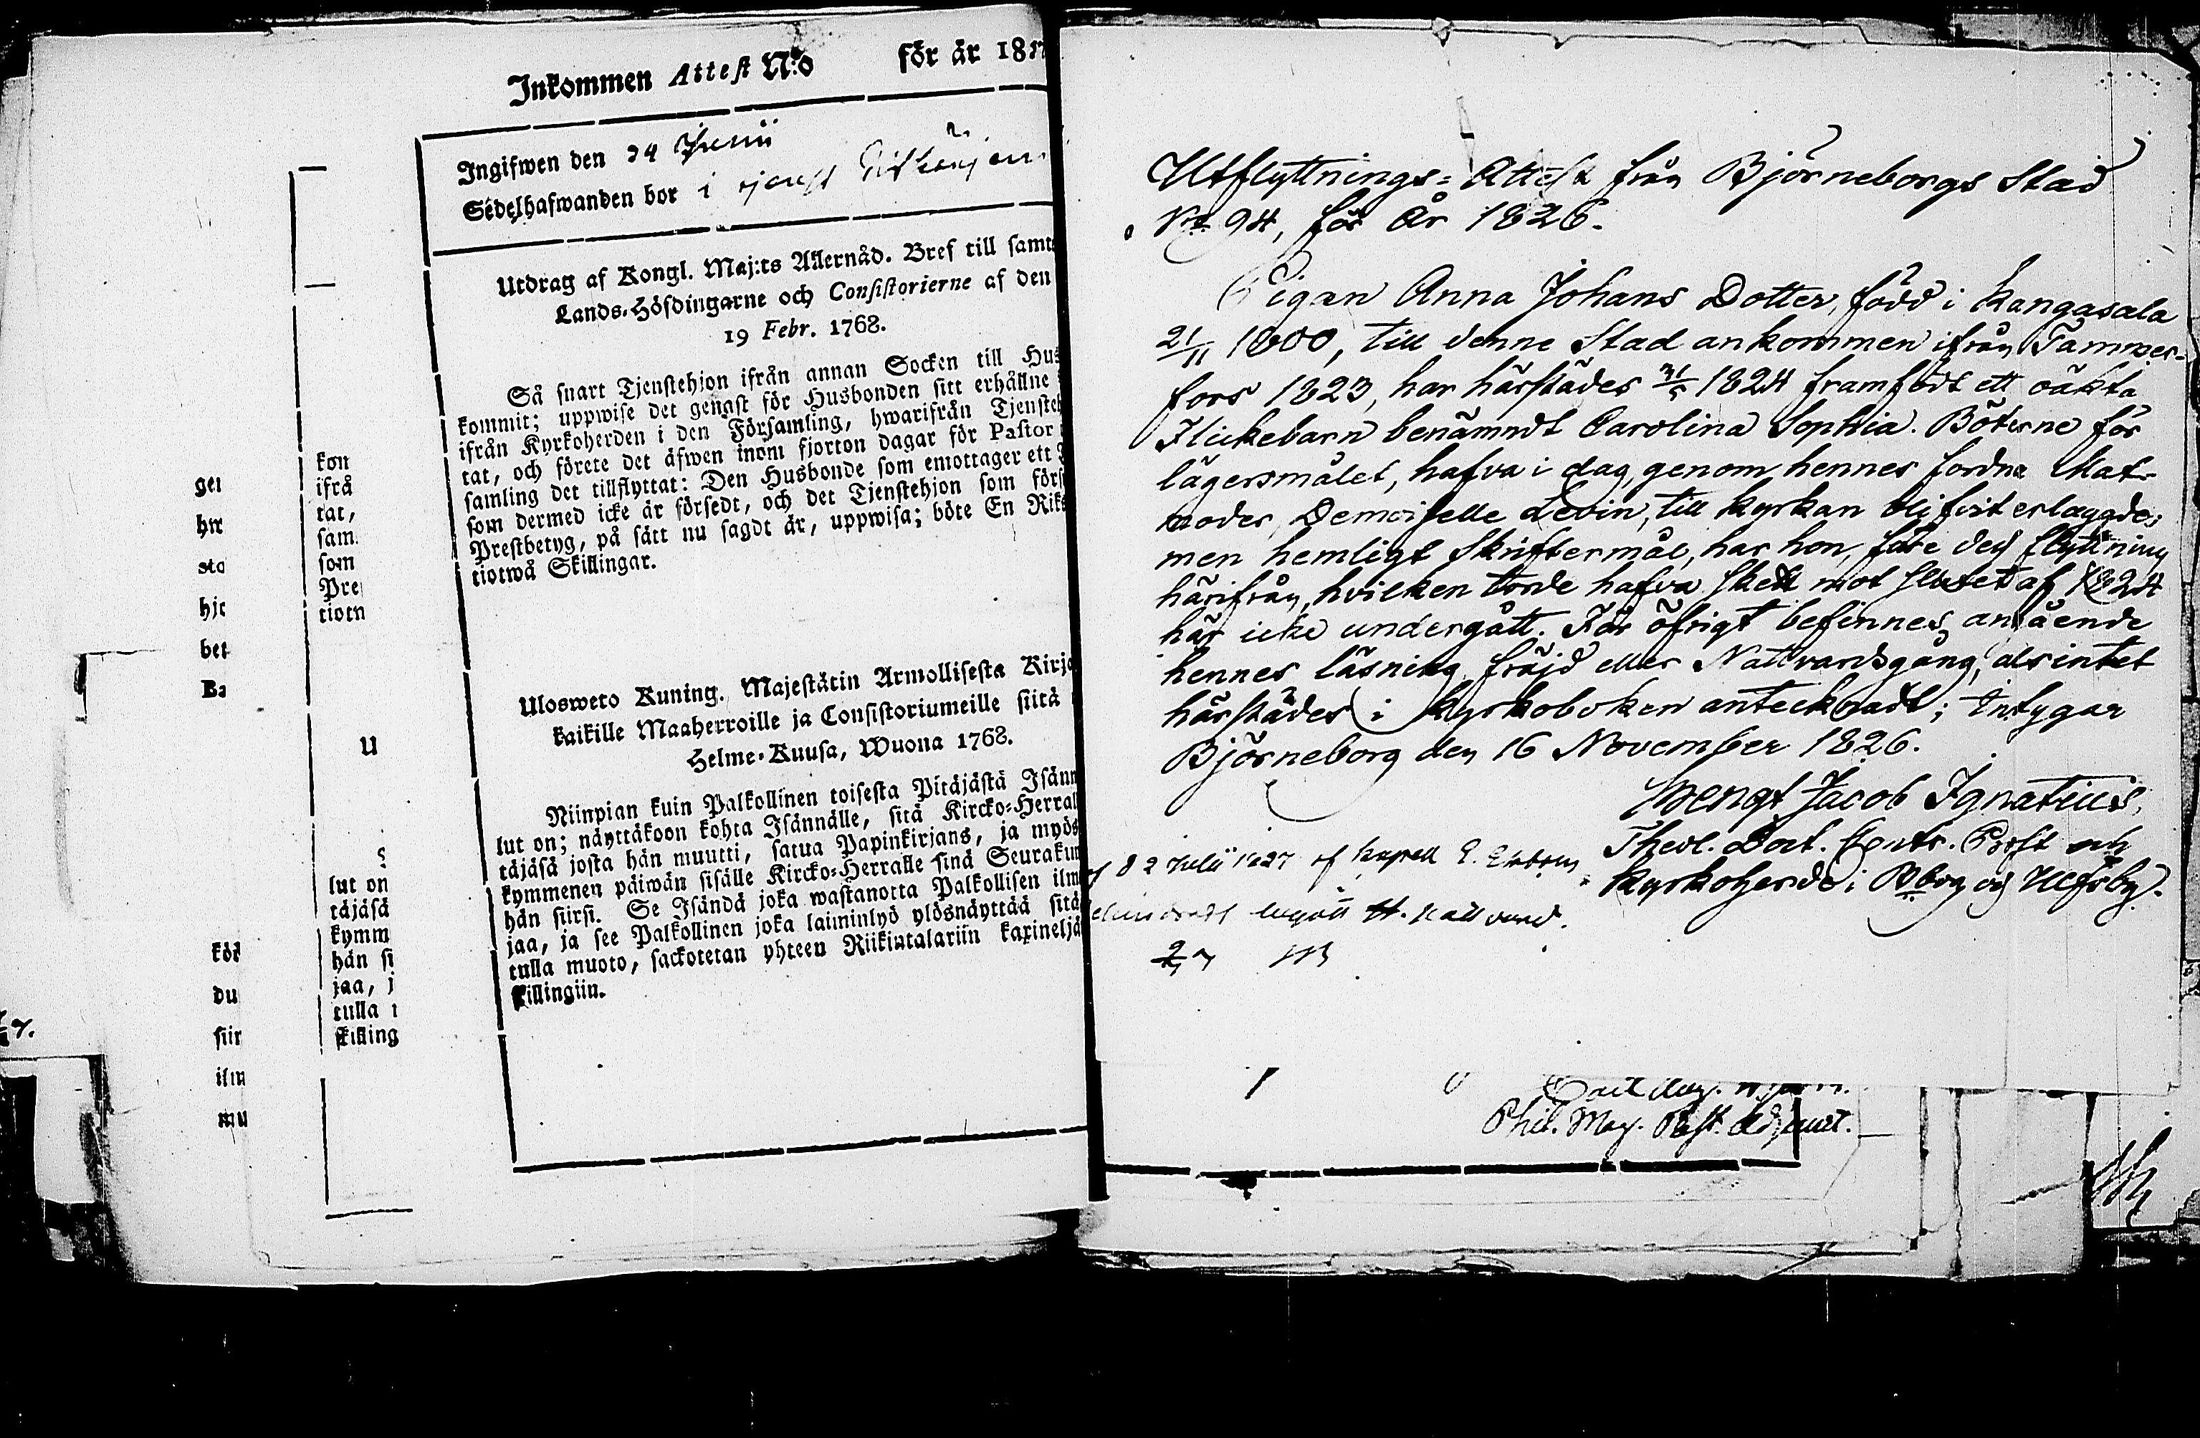 Inkommen Attest N:o för år 18
Ingifwen den 24 Junii
Sedelhafwanden bor i tjenst
Utdrag af Kongl. Maj:ts Allernåd. Bref till samt
Lands-Höfdingarne och Consistorierne af den
19 Febr. 1768.
Så snart Tjenstehjon ifrån annan Socken till Hus
kommit; uppwise det genast för Husbonden sitt erhållne
ifrån Kyrkoherden i den Församling, hwarifrån Tjensteh
tat, och förete det äfwen inom fjorton dagar för Pastor
samling det tillflyttat: Den Husbonde som emottager ett
som dermed icke är försedt, och det Tjenstehjon som förs
Prestbetyg, på sätt nu sagdt är, uppwisa; böte En Riks
tiotwå Skillingar.
Ulosweto Kuning. Majestätin Armollisesta Kirja
kaikille Maaherroille ja Consistoriumeille siitä
Helme-Kuusa, Wuona 1768.
Niinpian kuin Palkollinen toisesta Pitäjästä Isänn
lut on; näyttäkoon kohta Isännälle, sitä Kircko-Herral
täjäsä josta hän muutti, satua Papinkirjans, ja myös
kymmenen päiwän sisälle Kircko-Herralle sinä Seurakun
hän siirsi. Se Isändä joka wastanotta Palkollisen ilm
jaa, ja see Palkollinen joka laiminlyö ylösnäyttää sitä
tulla muoto, sackotetan yhteen Riikintalariin kaxineljä
skillingiin.
ger
hw
sta
hje
bet
Ba
kör
du
siir
ilm
mu
kon
ifrå
tat,
sam
som
Pre
tiotw
U
lut on
täjäsä
kymm
hän si
jaa, j
tulla
skilling
7.
Utflyttnings-Attest från Björneborgs Stad
No 94, för År 1826.
Pigan Anna Johans Dotter, född i Kangasala
21/11 1800, till denne Stad ankommen ifrån Tammer-
fors 1823, har härstädes 31/5 1824 framfödt ett oäkta
Flickebarn benämndt Carolina Sophia. Böterne för
lägersmålet, hafva i dag, genom hennes fordna Mat-
moder, Demoiselle Levin, till kyrkan blifvit erlagde;
men hemligt Skriftermål, har hon, före dess flyttning
härifrån, hvilken torde hafva skedt mot slutet af 1824
här icke undergått. För öfrigt befinnes, angående
hennes läsning, fräjd eller Nattvardsgång, alsintet
härstädes i kyrkoboken antecknadt; intygar
Björneborg den 16 November 1826.
Bengt Jacob Ignatius,
Theol. Doct. Contr. Prost och
Kyrkoherde i Bborg och Ulfsby.
d 2 Julii 1827 af
begått H. Nattvard.
Phil. Mag. Past. Adjunct.